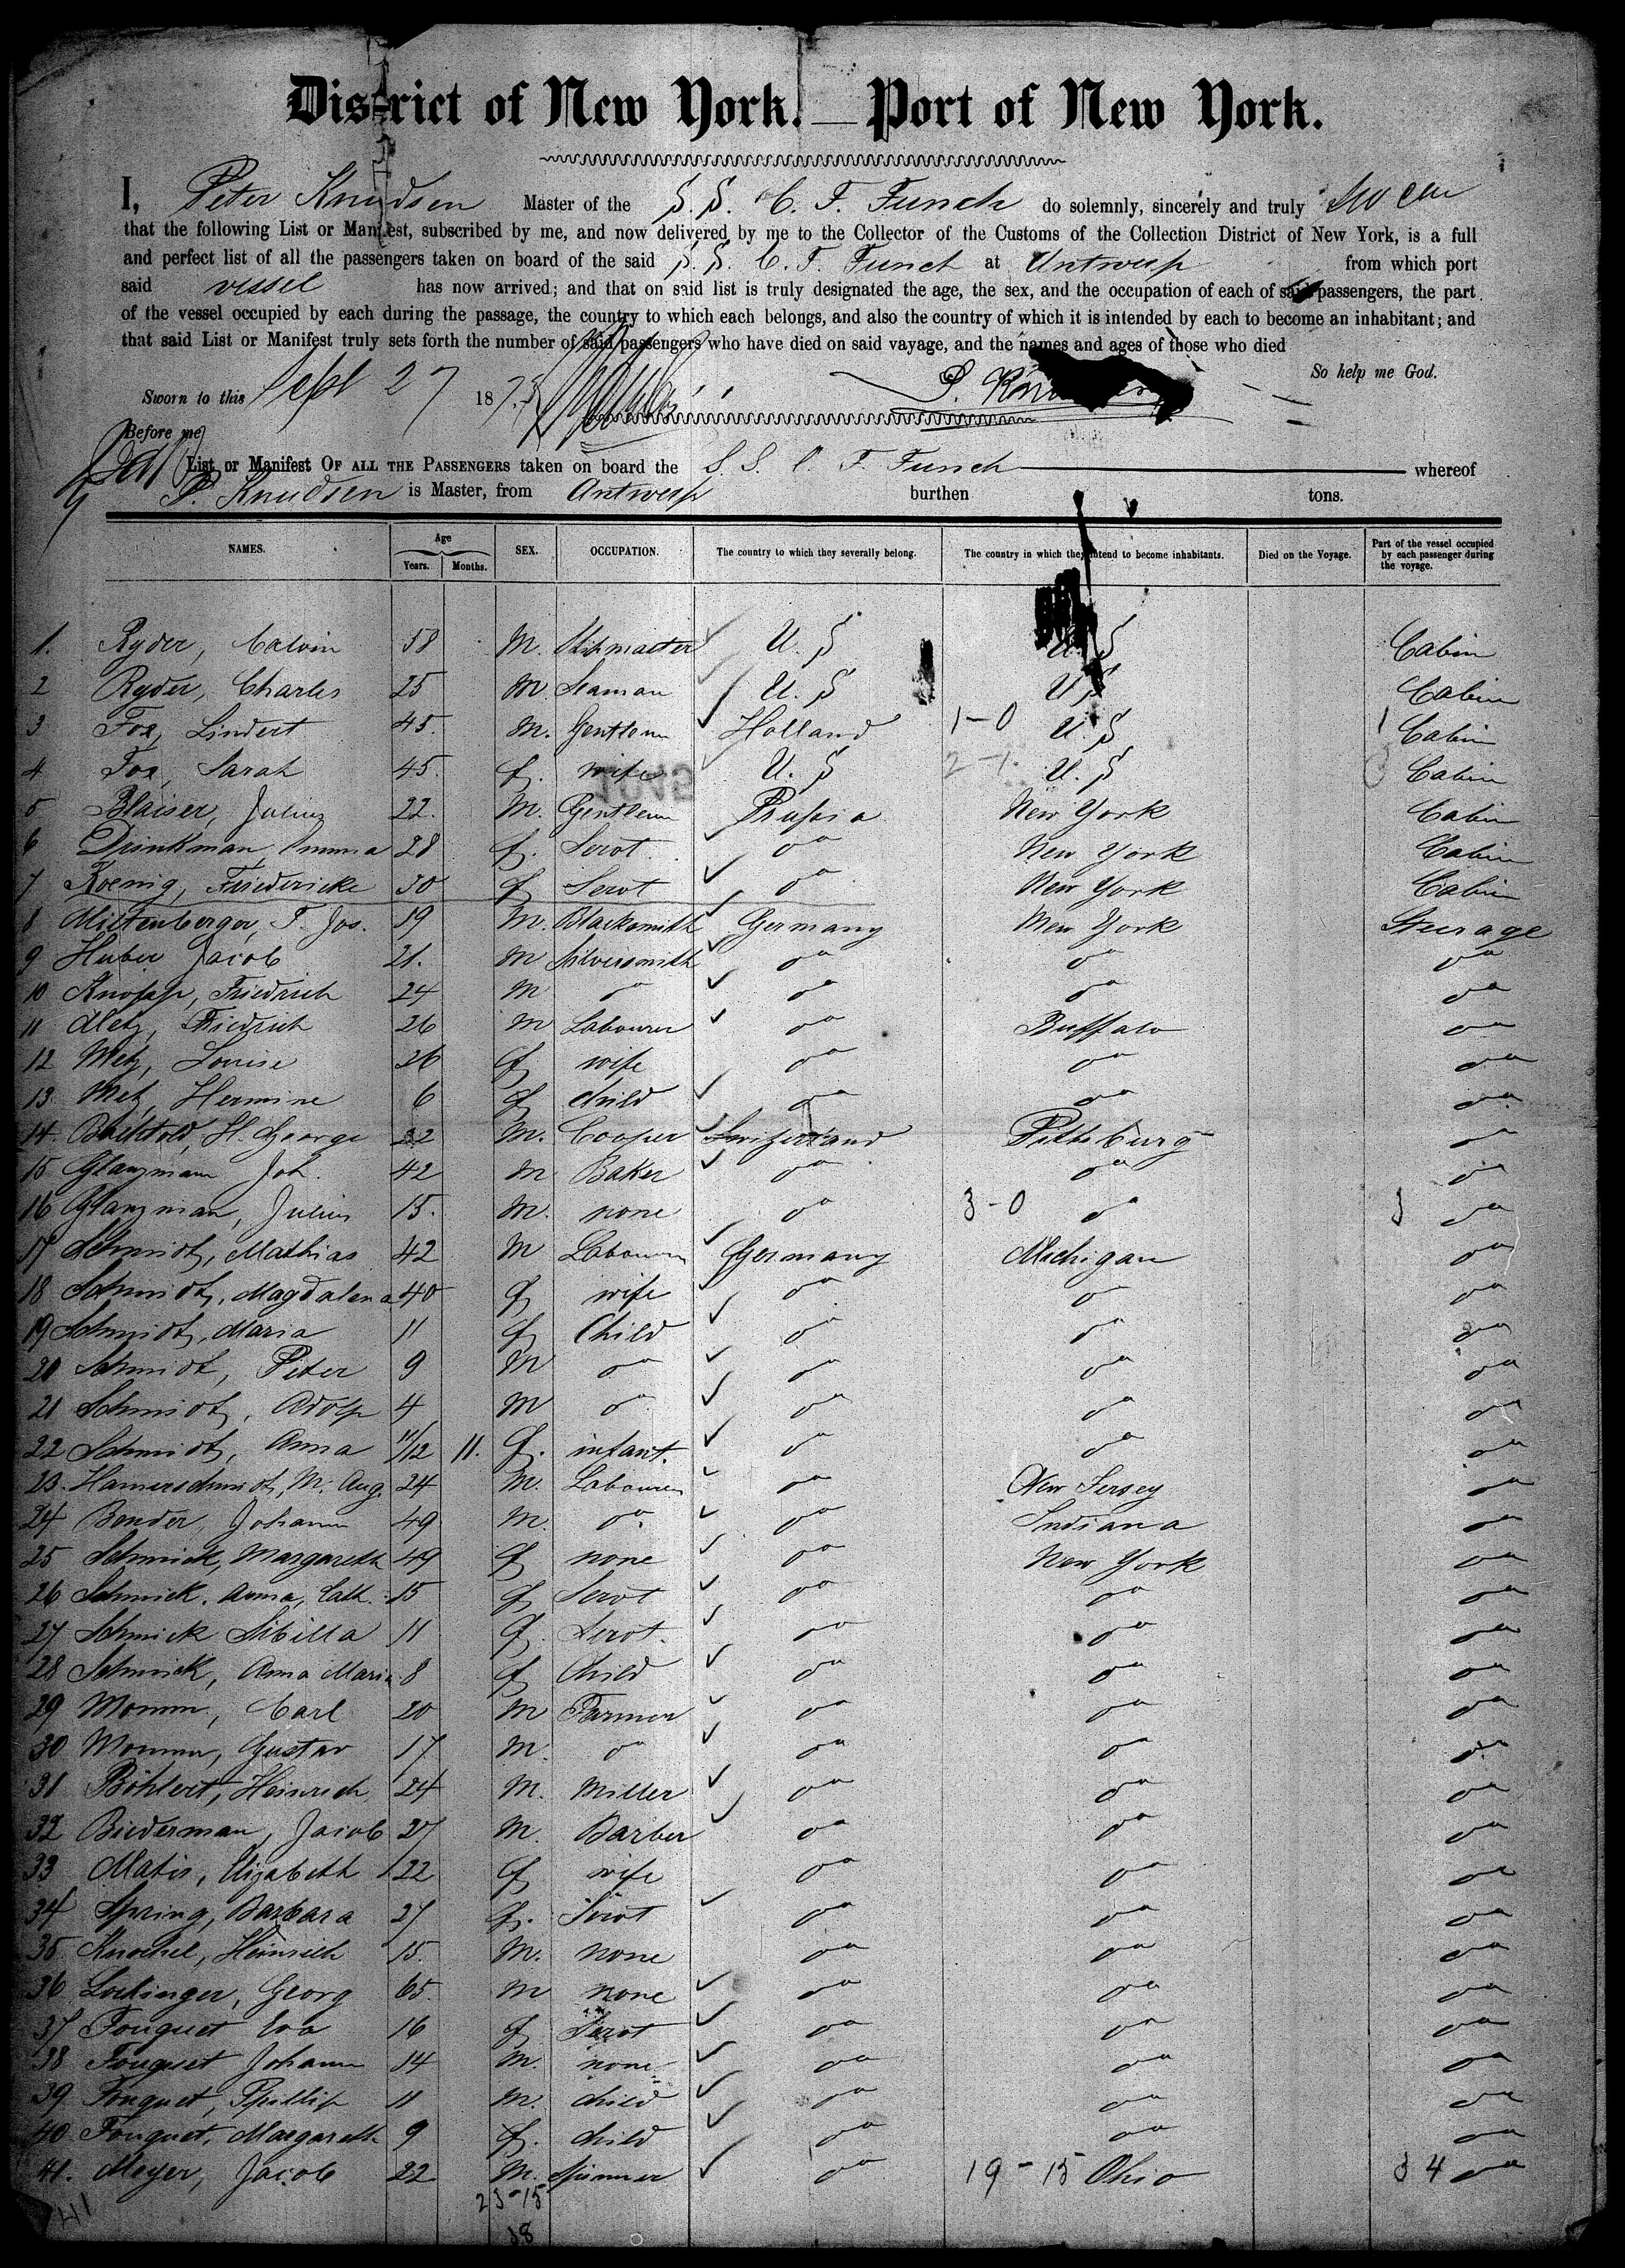 District of New York. — Port of New York.
I, Peter Knudsen Master of the S. S. C. F. Funch do solemnly, sincerely and truly swear
that the following List or Manifest, subscribed by me, and now delivered by me to the Collector of the Customs of the Collection District of New York, is a full
and perfect list of all the passengers taken on board of the said S. S. C. F. Funch at Antwerp from which port
said vessel has now arrived; and that on said list is truly designated the age, the sex, and the occupation of each of said passengers, the part
of the vessel occupied by each during the passage, the country to which each belongs, and also the country of which it is intended by each to become an inhabitant; and
that said List or Manifest truly sets forth the number of said passengers who have died on said vayage, and the names and ages of those who died
So help me God.
Sworn to this Sept 27 1875 P. Knudsen
Before me
List or Manifest OF ALL THE PASSENGERS taken on board the S. S. C. F. Funch whereof
P. Knudsen is Master, from Antwerp burthen tons.
NAMES. Age Years. Months. SEX. OCCUPATION. The country to which they severally belong. The country in which they intend to become inhabitants. Died on the Voyage. Part of the vessel occupied by each passenger during the voyage.
1. Ryder, Calvin 58 M. Shipmaster U. S U. S Cabin
2 Ryder, Charles 25 M. Seaman U. S U S Cabin
3 Fox, Lindert 45. M. Gentlem Holland 1-0 U S 1 Cabin
4 Fox, Sarah 45. f. wife U. S 2-1. U. S Cabin
5 Blaiser, Julius 22. M. Gentlem Prussia New York Cabin
6 Drinkman, Emma 28 f. Servt. do New York Cabin
7 Koenig, Friedericke 30 f Servt do New York Cabin
8 Miltenberger, F. Jos. 19 M. Blacksmith Germany New York Steerage
9 Huber Jacob 21. M Silversmith do do do
10 Knopp, Friedrich 24 M do do do do
11 Metz, Friedrich 26 M Labourer do Buffalo do
12 Metz, Louise 26 f wife do do do
13. Metz, Hermine 6 f child do do do
14. Bächtold, H. George 22 M. Cooper Switzerland Pittsburg do
15 Glanzmann Joh. 42 M Baker do do do
16 Glanzman, Julius 15. M. none do 3-0 do 3 do
17 Schmidt, Mathias 42 M Labourer Germany Michigan do
18 Schmidt, Magdalena 40 f wife do do do
19 Schmidt, Maria 11 f Child do do do
20 Schmidt, Peter 9 M do do do do
21 Schmidt, Adolp 4 M do do do do
22 Schmidt, Anna 11/12 11. f. infant. do do do
23. Hamerschmidt, M. Aug. 24 M. Labourer do New Jersey do
24 Bender, Johann 49 M. do do Indiana do
25 Schmick, Margareth 49 f none do New York do
26 Schmick, Anna, Cath. 15 f Servt do do do
27 Schmick Sibilla 11 f. Servt. do do do
28 Schmick, Anna Maria 8 f Child do do do
29 Momm, Carl 20 M Farmer do do do
30 Momm, Gustav 17 M. do do do do
31 Böhlert, Heinrich 24 M. Miller do do do
32 Biederman, Jacob 27 M. Barber do do do
33 Matis, Elizabeth 22 f wife do do do
34 Spring, Barbara 27 f. Servt do do do
35. Knochel, Heinrich 15. M. none do do do
36 Loelinger, Georg 65. M none do do do
37 Fouquet Eva 16 f Servt do do do
38 Fouquet Johann 14 M. none do do do
39 Fouquet, Phillip 11 M. child do do do
40 Fouquet, Margareth 9 f. child do do do
41. Meyer, Jacob 22 M. Spinner do 19-15 Ohio 34 do
23-15
41 18